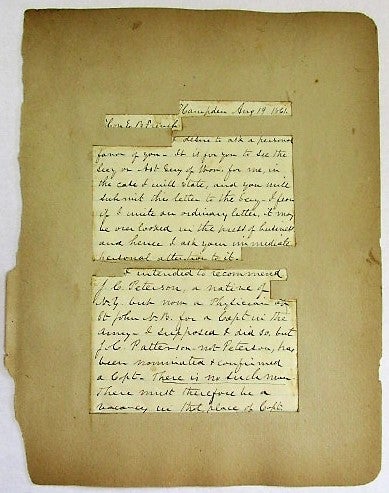 Hampden Aug 19 1861.
Hon E. B French
I desire to ask a personal
favor of you - It is for you to see the
Secy or Asst Secy of War for me, in
the case I will state, and you will
submit this letter to the Secy - I fear
if I write an ordinary letter, it may
be overlooked in the press of business
and hence I ask your immediate
personal attention to it.
I intended to recommend
J. C. Peterson, a native of
N.Y. but now a Physician at
St John N. B. for a Capt in the
army - I supposed I did so, but
J. C. Patterson not Peterson, has
been nominated & confirmed
a Capt - There is no such man
There must therefore be a
vacancy in that place of Capt